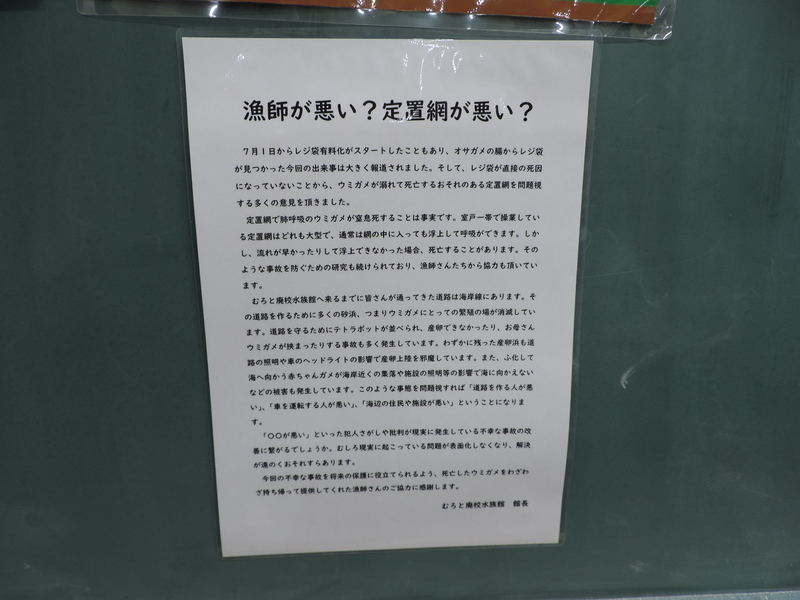 漁師が悪い？定置網が悪い？
７月１日からレジ袋有料化がスタートしたこともあり、オサガメの腸からレジ袋
が見つかった今回の出来事は大きく報道されました。そして、レジ袋が直接の死因
になっていないことから、ウミガメが溺れて死亡するおそれのある定置網を問題視
する多くの意見を頂きました。
定置網で肺呼吸のウミガメが窒息死することは事実です。室戸一帯で操業してい
る定置網はどれも大型で、通常は網の中に入っても浮上して呼吸ができます。しか
し、流れが早かったりして浮上できなかった場合、死亡することがあります。その
ような事故を防ぐための研究も続けられており、漁師さんたちから協力も頂いてい
ます。
むろと廃校水族館へ来るまでに皆さんが通ってきた道路は海岸線にあります。そ
の道路を作るために多くの砂浜、つまりウミガメにとっての繁殖の場が消滅してい
ます。道路を守るためにテトラポットが並べられ、産卵できなかったり、お母さん
ウミガメが挟まったりする事故も多く発生しています。わずかに残った産卵浜も道
路の照明や車のヘッドライトの影響で産卵上陸を邪魔しています。また、ふ化して
海へ向かう赤ちゃんガメが海岸近くの集落や施設の照明等の影響で海に向かえない
などの被害も発生しています。このような事態を問題視すれば「道路を作る人が悪
い」、「車を運転する人が悪い」、「海辺の住民や施設が悪い」ということになりま
す。
「〇〇が悪い」といった犯人さがしや批判が現実に発生している不幸な事故の改
善に繋がるでしょうか。むしろ現実に起こっている問題が表面化しなくなり、解決
が遠のくおそれすらあります。
今回の不幸な事故を将来の保護に役立てられるよう、死亡したウミガメをわざわ
ざ持ち帰って提供してくれた漁師さんのご協力に感謝します。
むろと廃校水族館　館長